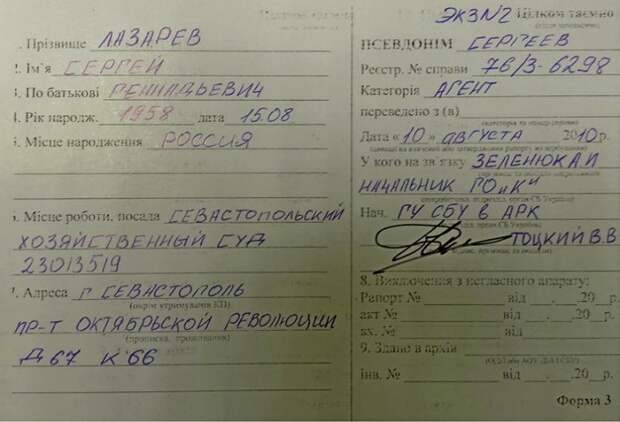 . Прізвище ЛАЗАРЕВ
!. Ім'я СЕРГЕЙ
. По батькові ГЕННАДЬЕВИЧ
. Рік народж. 1958 дата 15.08
. Місце народження РОССИЯ
. Місце роботи, посада СЕВАСТОПОЛЬСКИЙ
ХОЗЯЙСТВЕННЫЙ СУД
23013519
. Адреса Г СЕВАСТОПОЛЬ
(окрім утримувачів КП)
ПР-Т ОКТЯБРЬСКОЙ РЕВОЛЮЦИИ
(прописка, проживання)
Д 67 К 66
ЭКЗ №2 Цілком таємно
ПСЕВДОНІМ СЕРГЕЕВ
Реєстр. № справи 76/3-6298
Категорія АГЕНТ
переведено з (в)
Дата «10» АВГУСТА 2010р.
У кого на зв'язку ЗЕЛЕНЮК А.И
НАЧАЛЬНИК ГО „К"
Нач. ГУ СБУ В АРК
ТОЦКИЙ В.В
8. Виключення з негласного апарату:
Рапорт № від . .20 р.
акт № від . .20 р.
вх. № від
9. Здано в архів
інв. № від . .20 р.
Форма 3